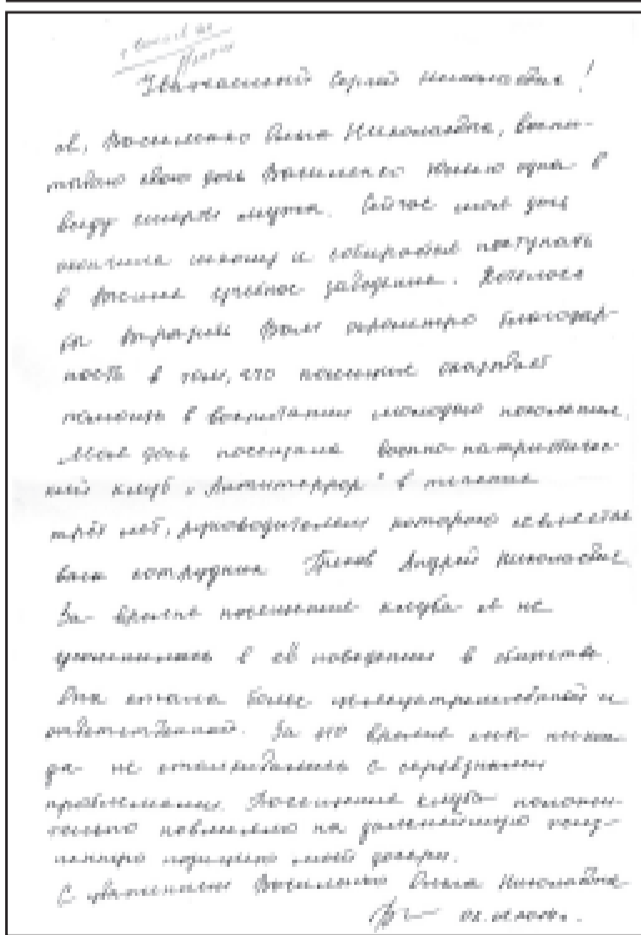 Уважаемый Сергей Николаевич!
Я, Василенко Ольга Николаевна, воспи-
тываю свою дочь Василенко Юлию одна в
виду смерти мужа. Сейчас моя дочь
окончила школу и собирается поступать
в высшее учебное заведение. Хотелось
бы выразить Вам огромную благодар-
ность в том, что полиция оказывает
помощь в воспитании молодого поколения.
Моя дочь посещала военно-патриотичес-
кий клуб "Антитеррор" в течение
трёх лет, руководителем которого является
ваш сотрудник Андрей Николаевич.
За время посещения клуба я не
усомнилась в её поведении в обществе.
Она стала более целеустремленной и
ответственной. За это время мы никог-
да не сталкивались с серьёзными
проблемами. Посещение клуба положи-
тельно повлияло на дальнейшую
позицию моей дочери.
С уважением Василенко Ольга Николаевна